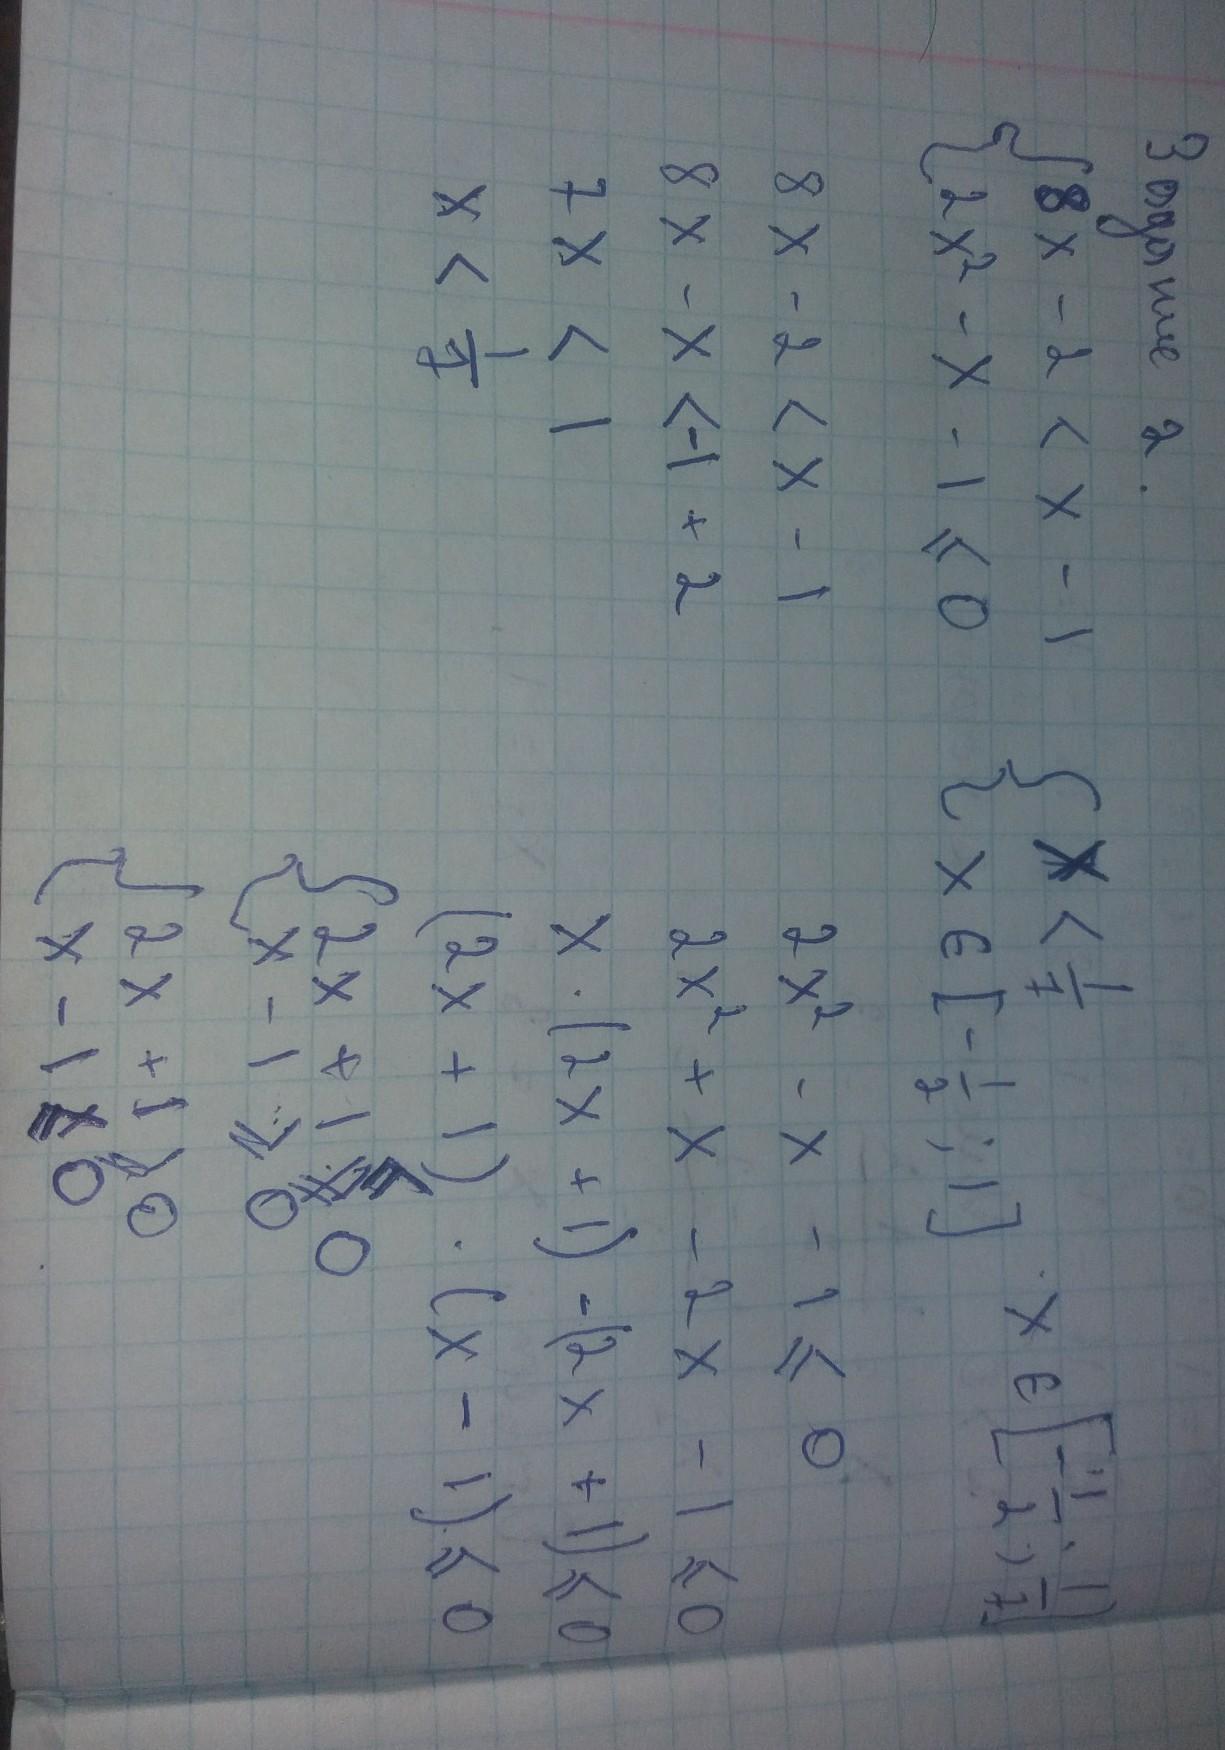 Задание 2.
{ 8x - 2 < x - 1
{ 2x² - x - 1 ⩽ 0
{ x < 1/7
{ x ∈ [-1/2; 1]
x ∈ [-1/2; 1/7)
8x - 2 < x - 1
8x - x < -1 + 2
7x < 1
x < 1/7
2x² - x - 1 ⩽ 0
2x² + x - 2x - 1 ⩽ 0
x · (2x + 1) - (2x + 1) ⩽ 0
(2x + 1) · (x - 1) ⩽ 0
{ 2x + 1 ⩾ 0
{ x - 1 ⩽ 0
{ 2x + 1 ⩽ 0
{ x - 1 ⩾ 0